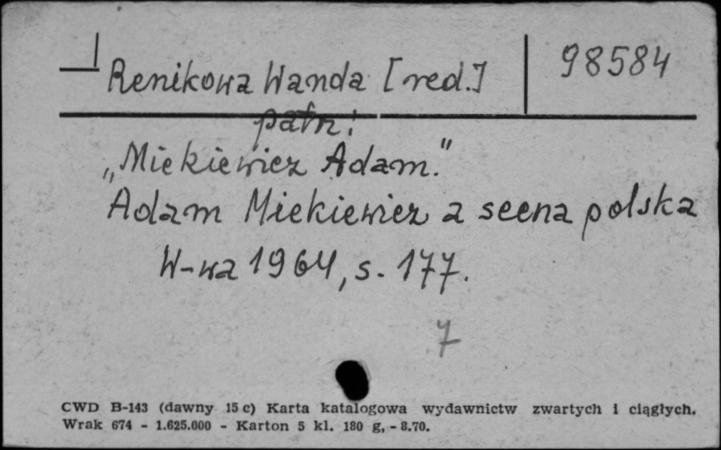 Renikowa Wanda [red.] 98584
patrz:
„Mickiewicz Adam."
Adam Mickiewicz a scena polska
W-wa 1964, s. 177.
7
CWD B-143 (dawny 15 c) Karta katalogowa wydawnictw zwartych i ciągłych.
Wrak 674 - 1.625.000 - Karton 5 kl. 180 g, - 8.70.